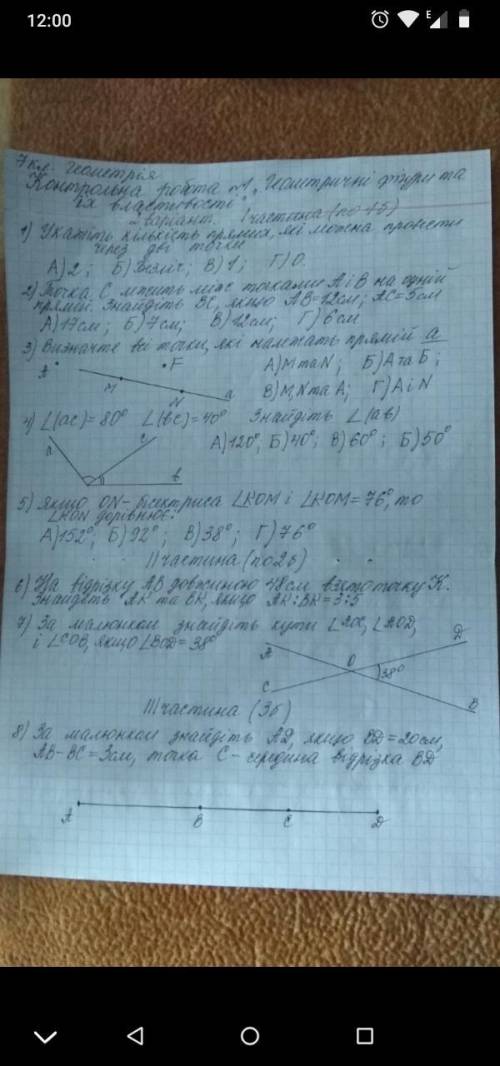 12:00
E
7 кл. Геометрія
Контрольна робота №1 „Геометричні фігури та
їх властивості"
2 варіант. I частина (по 1б)
1) Укажіть кількість прямих, які можна провести
через дві точки
А) 2; Б) безліч; В) 1; Г) 0.
2) Точка С лежить між точками А і В на одній
прямій. Знайдіть ВС, якщо АВ=12см; АС=5см
А) 17см; Б) 7см; В) 12см; Г) 6см
3) Визначте всі точки, які належать прямій а
А) М та N; Б) А та Б;
В) М, N та А; Г) А і N
A F M N a
4) ∠(ac)=80° ∠(bc)=40° Знайдіть ∠(ab)
А) 120°; Б) 40°; В) 60°; Б) 50°
a c b
5) Якщо ON- бісектриса ∠КОМ і ∠КОМ=76°, то
∠KON дорівнює:
А) 152°; Б) 92°; В) 38°; Г) 76°
II частина (по 2б)
6) На відрізку АВ довжиною 48см взято точку К.
Знайдіть АК та ВК, якщо АК:ВК=3:5
7) За малюнком знайдіть кути ∠АОС, ∠АОD,
і ∠СОВ, якщо ∠BOD=38°
A O D
C 38° B
III частина (3б)
8) За малюнком знайдіть АД, якщо ВД=20см,
АВ-ВС=3см, точка С- середина відрізка ВД
A B C Д